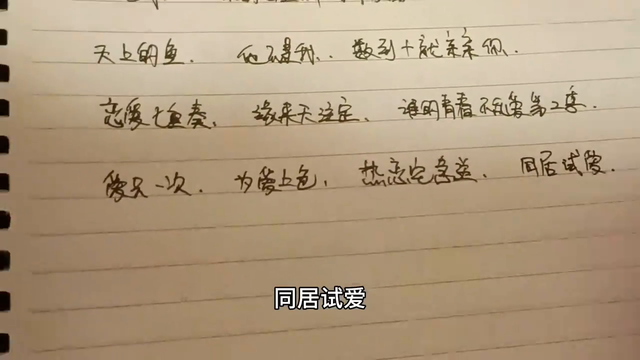 天上的鱼. 他不是我.. 数到十就亲亲你.
恋爱七重奏, 缘来天注定, 谁的青春不恋爱第2季.
爱只一次. 为爱上色, 热恋完备. 同居试爱.
同居试爱